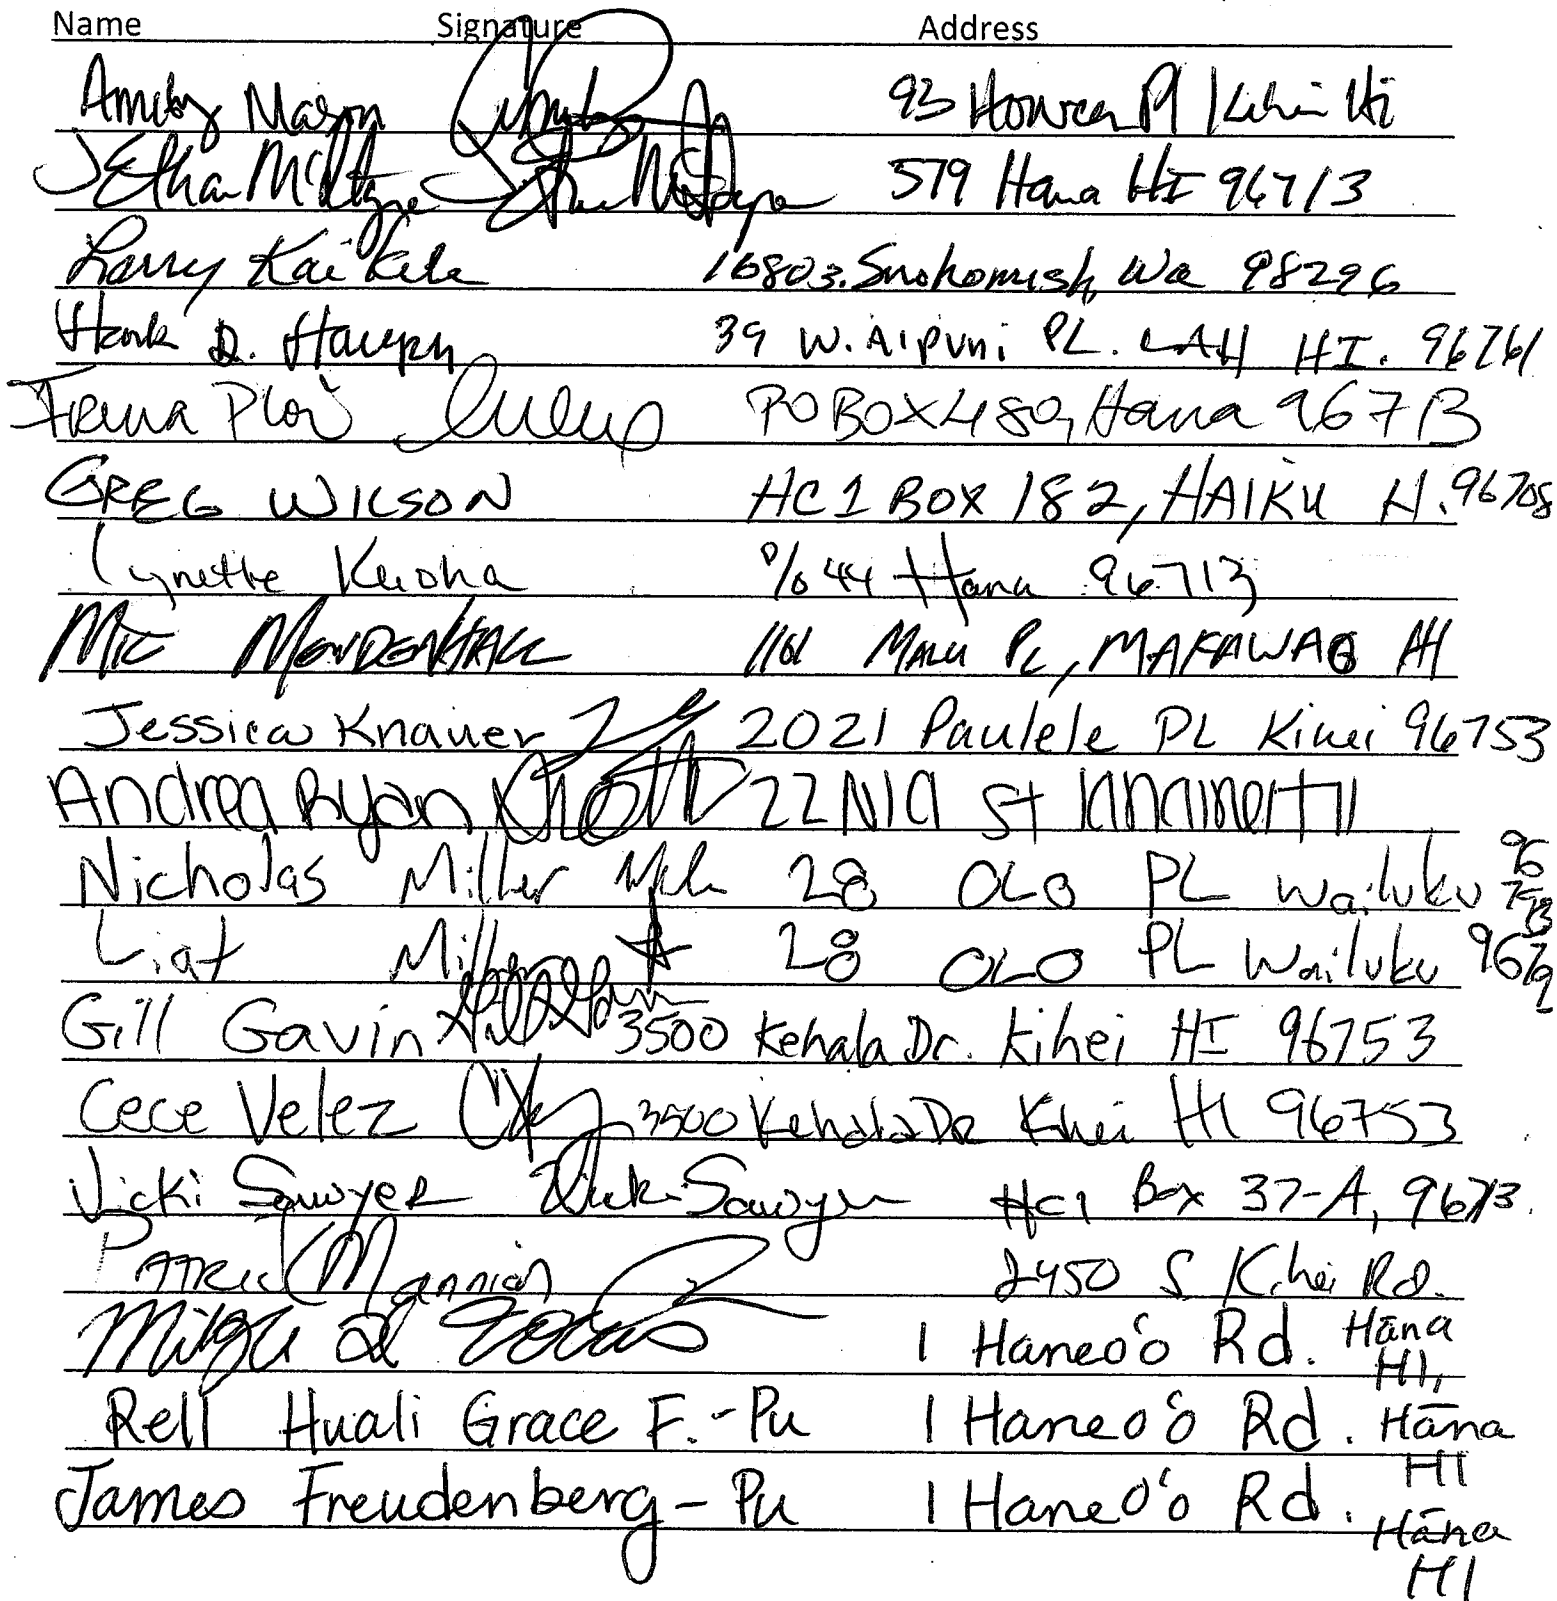 Name Signature Address
Mason 93 Pl Kihei Hi
J Ethan McIntyre 579 Hana HI 96713
Larry Kai 16803. Snohomish, Wa 98296
Hank D. 39 W. Aipuni PL. LAH HI. 96761
PO BOX 480, Hana 96713
GREG WILSON HC1 BOX 182, HAIKU H. 96708
Lynette % 44 Hana 96713
Mic MENDENHALL PL, MAKAWAO
Jessica Knauer 2021 Paulele PL Kihei 96753
Andrea Ryan 22 Nia St
Nicholas Miller 28 OLO PL Wailuku 96
Liat Miller 28 OLO PL Wailuku
Gill Gavin 3500 Kehala Dr. Kihei HI 96753
Cece Velez 3500 Kehala DR Kihei HI 96753
Vicki Sawyer Vicki Sawyer HC1 Box 37-A, 96713.
Patrick Mannion 2450 S. Kihei Rd.
1 Haneo'o Rd. Hāna
HI,
Rell Huali Grace F.-Pu 1 Haneo'o Rd. Hāna
HI
James Freudenberg-Pu 1 Haneo'o Rd. Hāna
HI